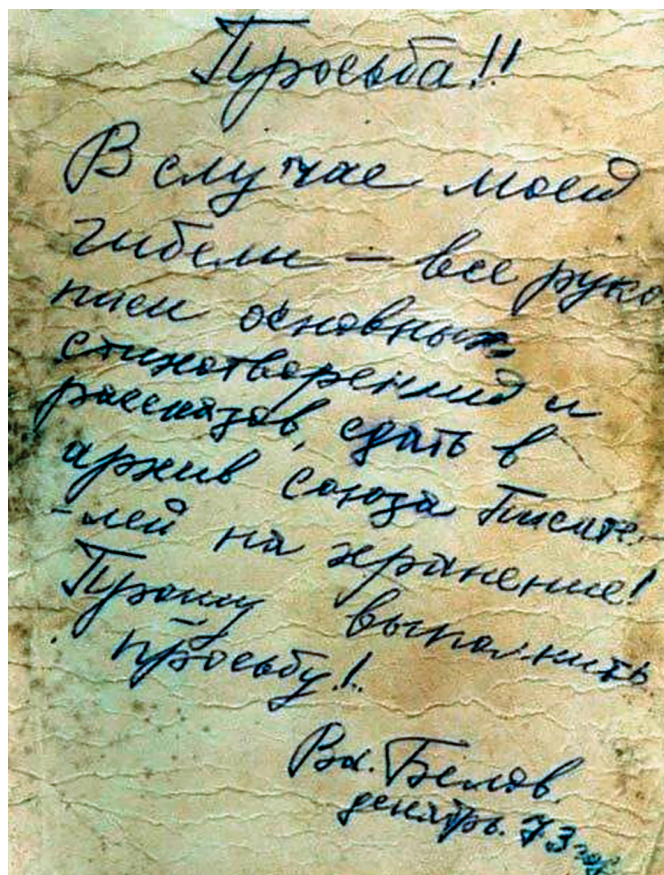 Просьба!!
В случае моей
гибели — все руко
писи основных
стихотворений и
рассказов, сдать в
архив союза Писате-
-лей на хранение!
Прошу выполнить
просьбу!.
Вл. Белов.
декабрь. 73 год